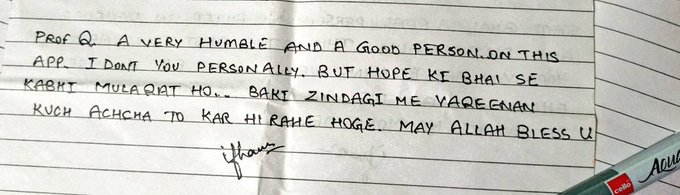 PROF Q. A VERY HUMBLE AND A GOOD PERSON..ON THIS
APP. I DONT YOU PERSONALLY. BUT HOPE KI BHAI SE
KABHI MULAQAT HO.. BAKI ZINDAGI ME YAQEENAN
KUCH ACHCHA TO KAR HI RAHE HOGE. MAY ALLAH BLESS U
cello Aqua